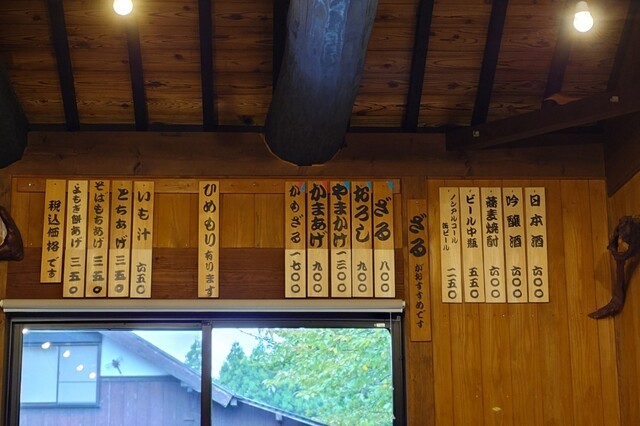 日本酒 六〇〇
吟醸酒 六〇〇
蕎麦焼酎 六〇〇
ビール中瓶 五五〇
ノンアルコール缶ビール 二五〇
ざるがおすすめです
ざる 八〇〇
おろし 九〇〇
やまかけ 一三〇〇
かまあげ 九〇〇
かめざる 一七〇〇
ひめもり有ります
いも汁 六五〇
とちあげ 三五〇
そばもちあげ 三五〇
よもぎ餅あげ 三五〇
税込価格です